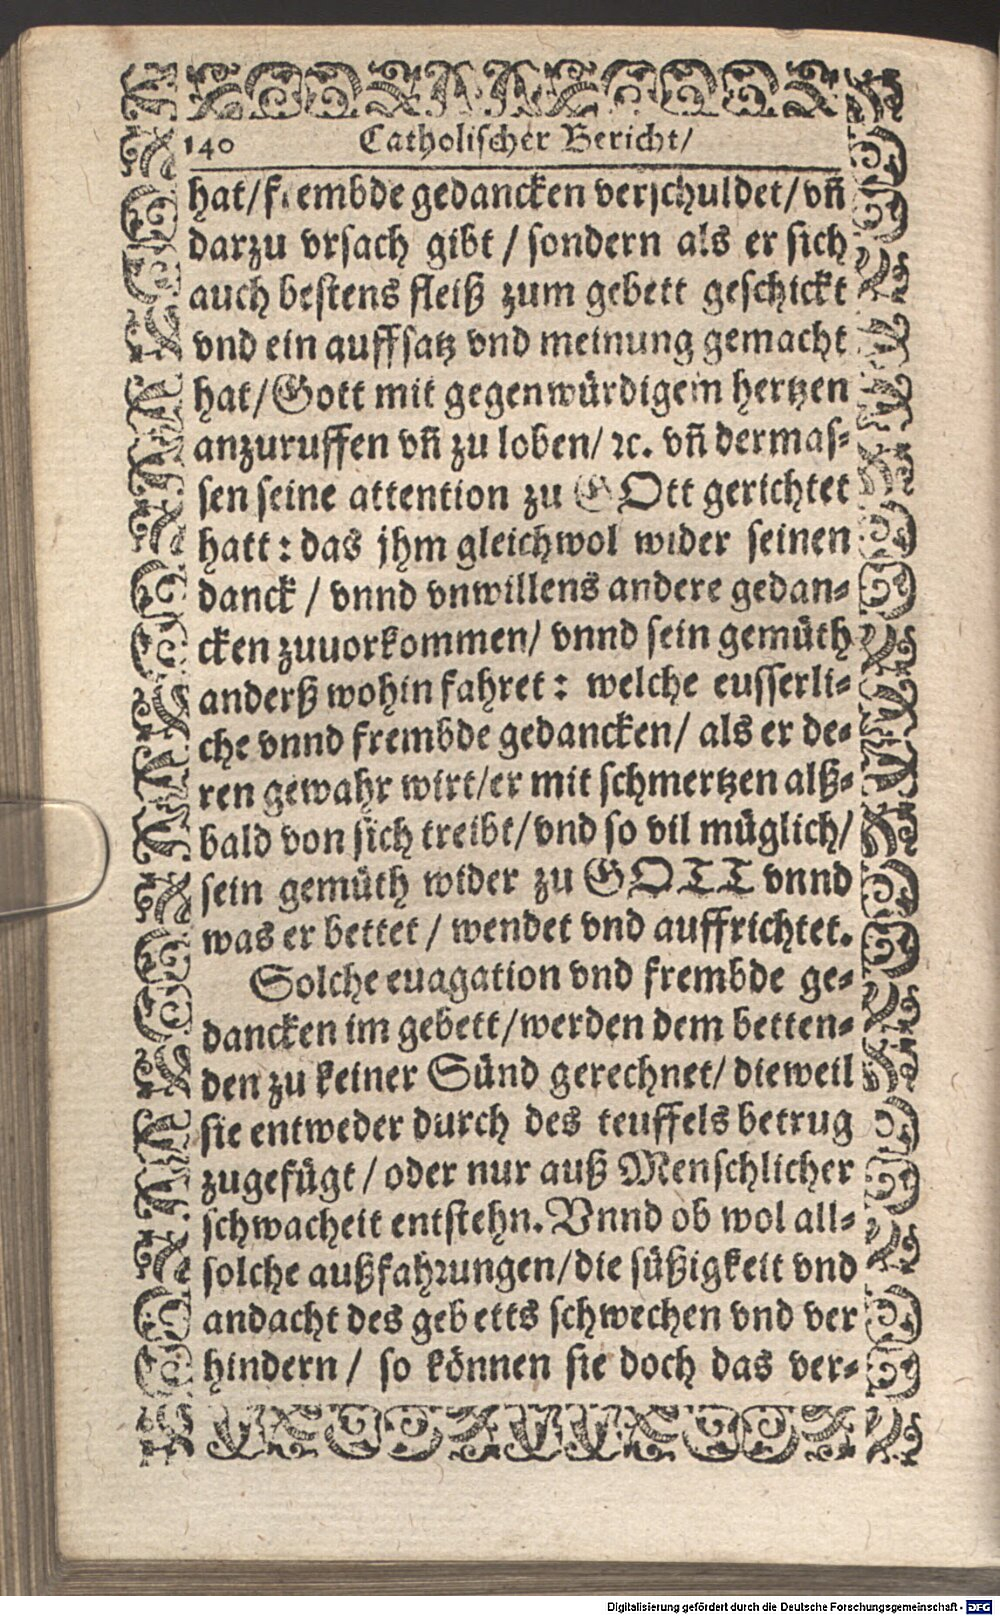 140 Catholischer Bericht/
hat/frembde gedancken verschuldet/vñ
darzu vrsach gibt / sondern als er sich
auch bestens fleiß zum gebett geschickt
vnd ein auffsatz vnd meinung gemacht
hat/Gott mit gegenwürdigem hertzen
anzuruffen vñ zu loben/ ꝛc. vñ dermas-
sen seine attention zu GOtt gerichtet
hatt: das jhm gleichwol wider seinen
danck / vnnd vnwillens andere gedan-
cken zuuorkommen/ vnnd sein gemüth
anderß wohin fahret: welche eusserli-
che vnnd frembde gedancken/ als er de-
ren gewahr wirt/er mit schmertzen alß-
bald von sich treibt/vnd so vil müglich/
sein gemüth wider zu GOTT vnnd
was er bettet / wendet vnd auffrichtet.
Solche euagation vnd frembde ge-
dancken im gebett/werden dem betten-
den zu keiner Sünd gerechnet/ dieweil
sie entweder durch des teuffels betrug
zugefügt / oder nur auß Menschlicher
schwacheit entstehn. Vnnd ob wol all-
solche außfahrungen/die süßigkeit vnd
andacht des gebetts schwechen vnd ver
hindern / so können sie doch das ver-
Digitalisierung gefördert durch die Deutsche Forschungsgemeinschaft - DFG